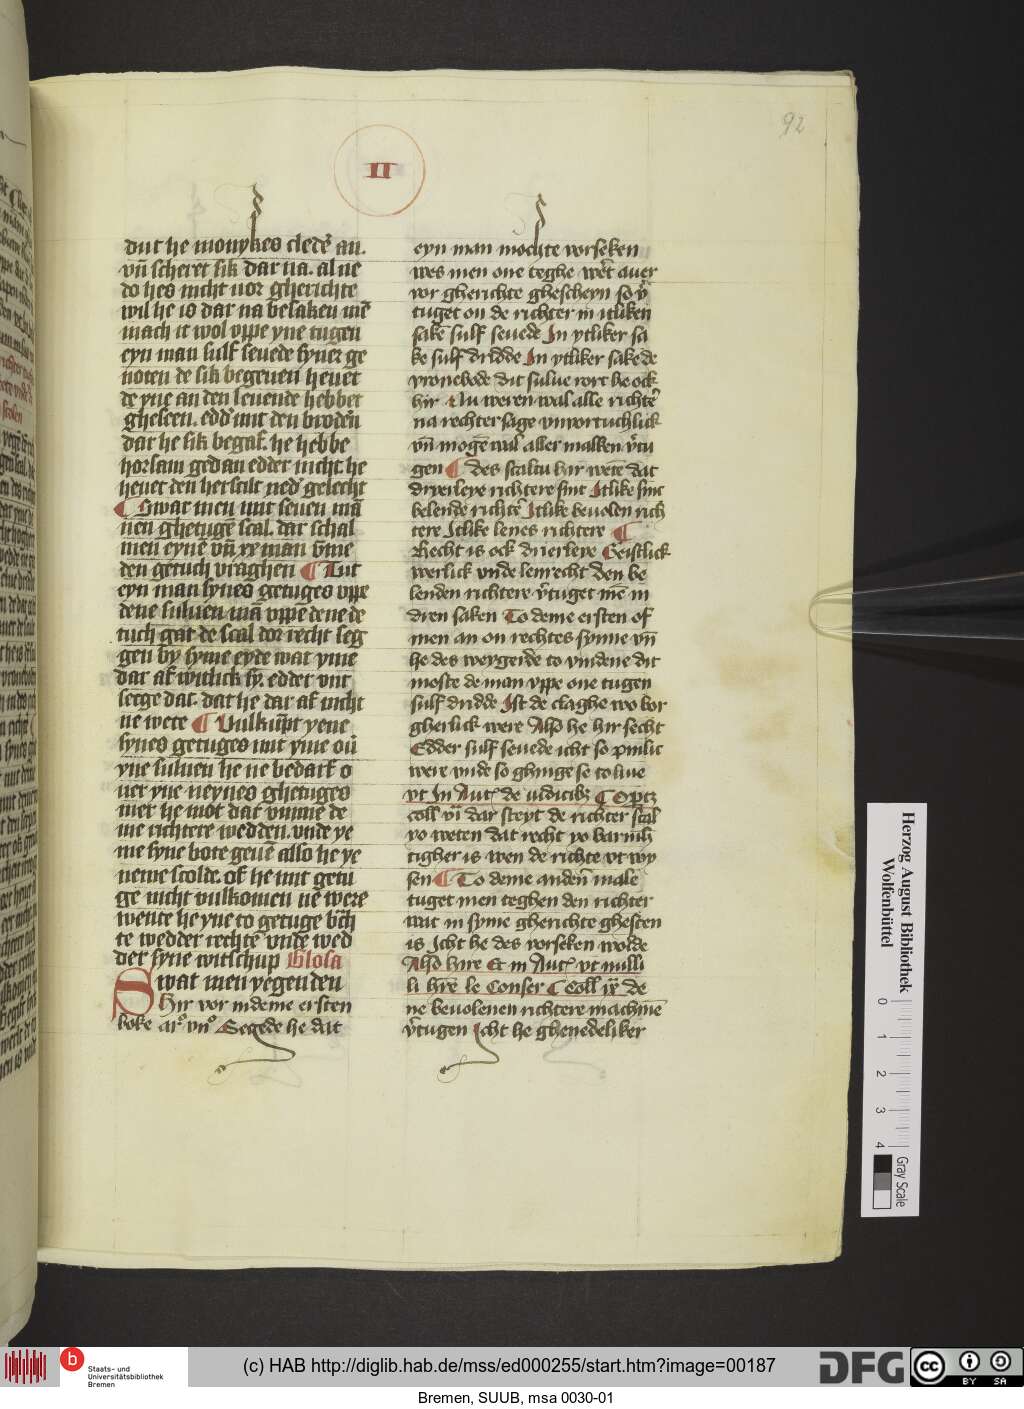 92
II
dut he monykes cleder an.
vn̄ scheret sik dar na. al ne
do hes nicht vor gherichte
wil he is dar na besaken mē
mach it wol vppe yne tugen
eyn man sulf seuede syner ge
noten de sik begeuen heuet
de yne an den leuende hebbet
gheseen. edd' mit den broderen
dar he sik begaf. he hebbe
horsam gedan edder nicht. he
heuet den herscilt neder gelecht
Swat men mit seuen mā
nen ghetugē scal. dar schal
men eynē vn̄ xx man vm̄e
den getuch vraghen Tut
eyn man synes getuges vppe
dene suluen mā vppē dene de
tuch gat de scal dor recht seg
gen by syme eyde wat yme
dar af witlick sy. edder vnt
secge dat. dat he dar af nicht
ne wete Vulkūpt yene
synes getuges mit yme ouer
yne suluen he ne bedarf o
uer yne neynes ghetuges
mer he mot dat vmme de
me richtere wedden. vnde ye
me syne bote geuē also he ye
neme scolde. of he mit getu
ge nicht vulkomen ne were
wente he yne to getuge brch
te wedder rechte vnde wed
der syne witschup Glosa
Swat men yegen den
Hir vor in deme ersten
boke ar° vn° Segede he dat
eyn man mochte vorseken
wes men one teghe wēt auer
vor gherichte ghescheyn so v̄
tuget on de richter in itliken
sake sulf seuede In ytliker sa
ke sulf drldde In ytliker sake de
vronebode dit sulue rort he ock
hir Nu weren wal alle richtē
na rechter sage vnvortuchlick
vn̄ mogē wal aller malken v̄tu
gen des scaltu hir wete dat
drierleye richtere sint Itlike sint
belende richtē Itlike beuolen rich
tere Itlike lenes richtere
Recht is ock drierleye Geistlick
werlick vnde lenrecht Den be
lenden richtere v̄tuget mē in
dren saken To deme ersten of
men an on rechtes synne vn̄
he des weygerde to vindene dit
moste de man vppe one tugen
sulf drldde Ist de claghe wo bor
gherlick were Also he hir secht
Edder sulf seuede icht so pinlic
were vnde so ghinge se to liue
vt In Aut' de iudicib3
coll vi dar steyt de richter scal
yo weten dat recht yo barmh
tigher is wen de richte vt wy
sen To deme anderen male
tuget men teghen den richter
wat in syme gherichte ghesten
is Icht he des vorseken wolde
Also hire Et in Aut' vt nulli
li hre le Conser Coll ix de
ne beuolenen richtere mach mē
v̄tugen Icht he ghenedeliker
Herzog August Bibliothek
Wolfenbüttel
0
1
2
3
4
Gray Scale
b
Staats- und
Universitätsbibliothek
Bremen
(c) HAB http://diglib.hab.de/mss/ed000255/start.htm?image=00187
DFG
cc
BY SA
Bremen, SUUB, msa 0030-01